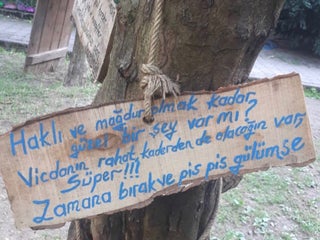 Haklı ve mağdur olmak kadar
güzel bir şey var mı?
Vicdanın rahat, kaderden de alacağın var,
Süper!!!
Zamana bırak ve pis pis gülümse